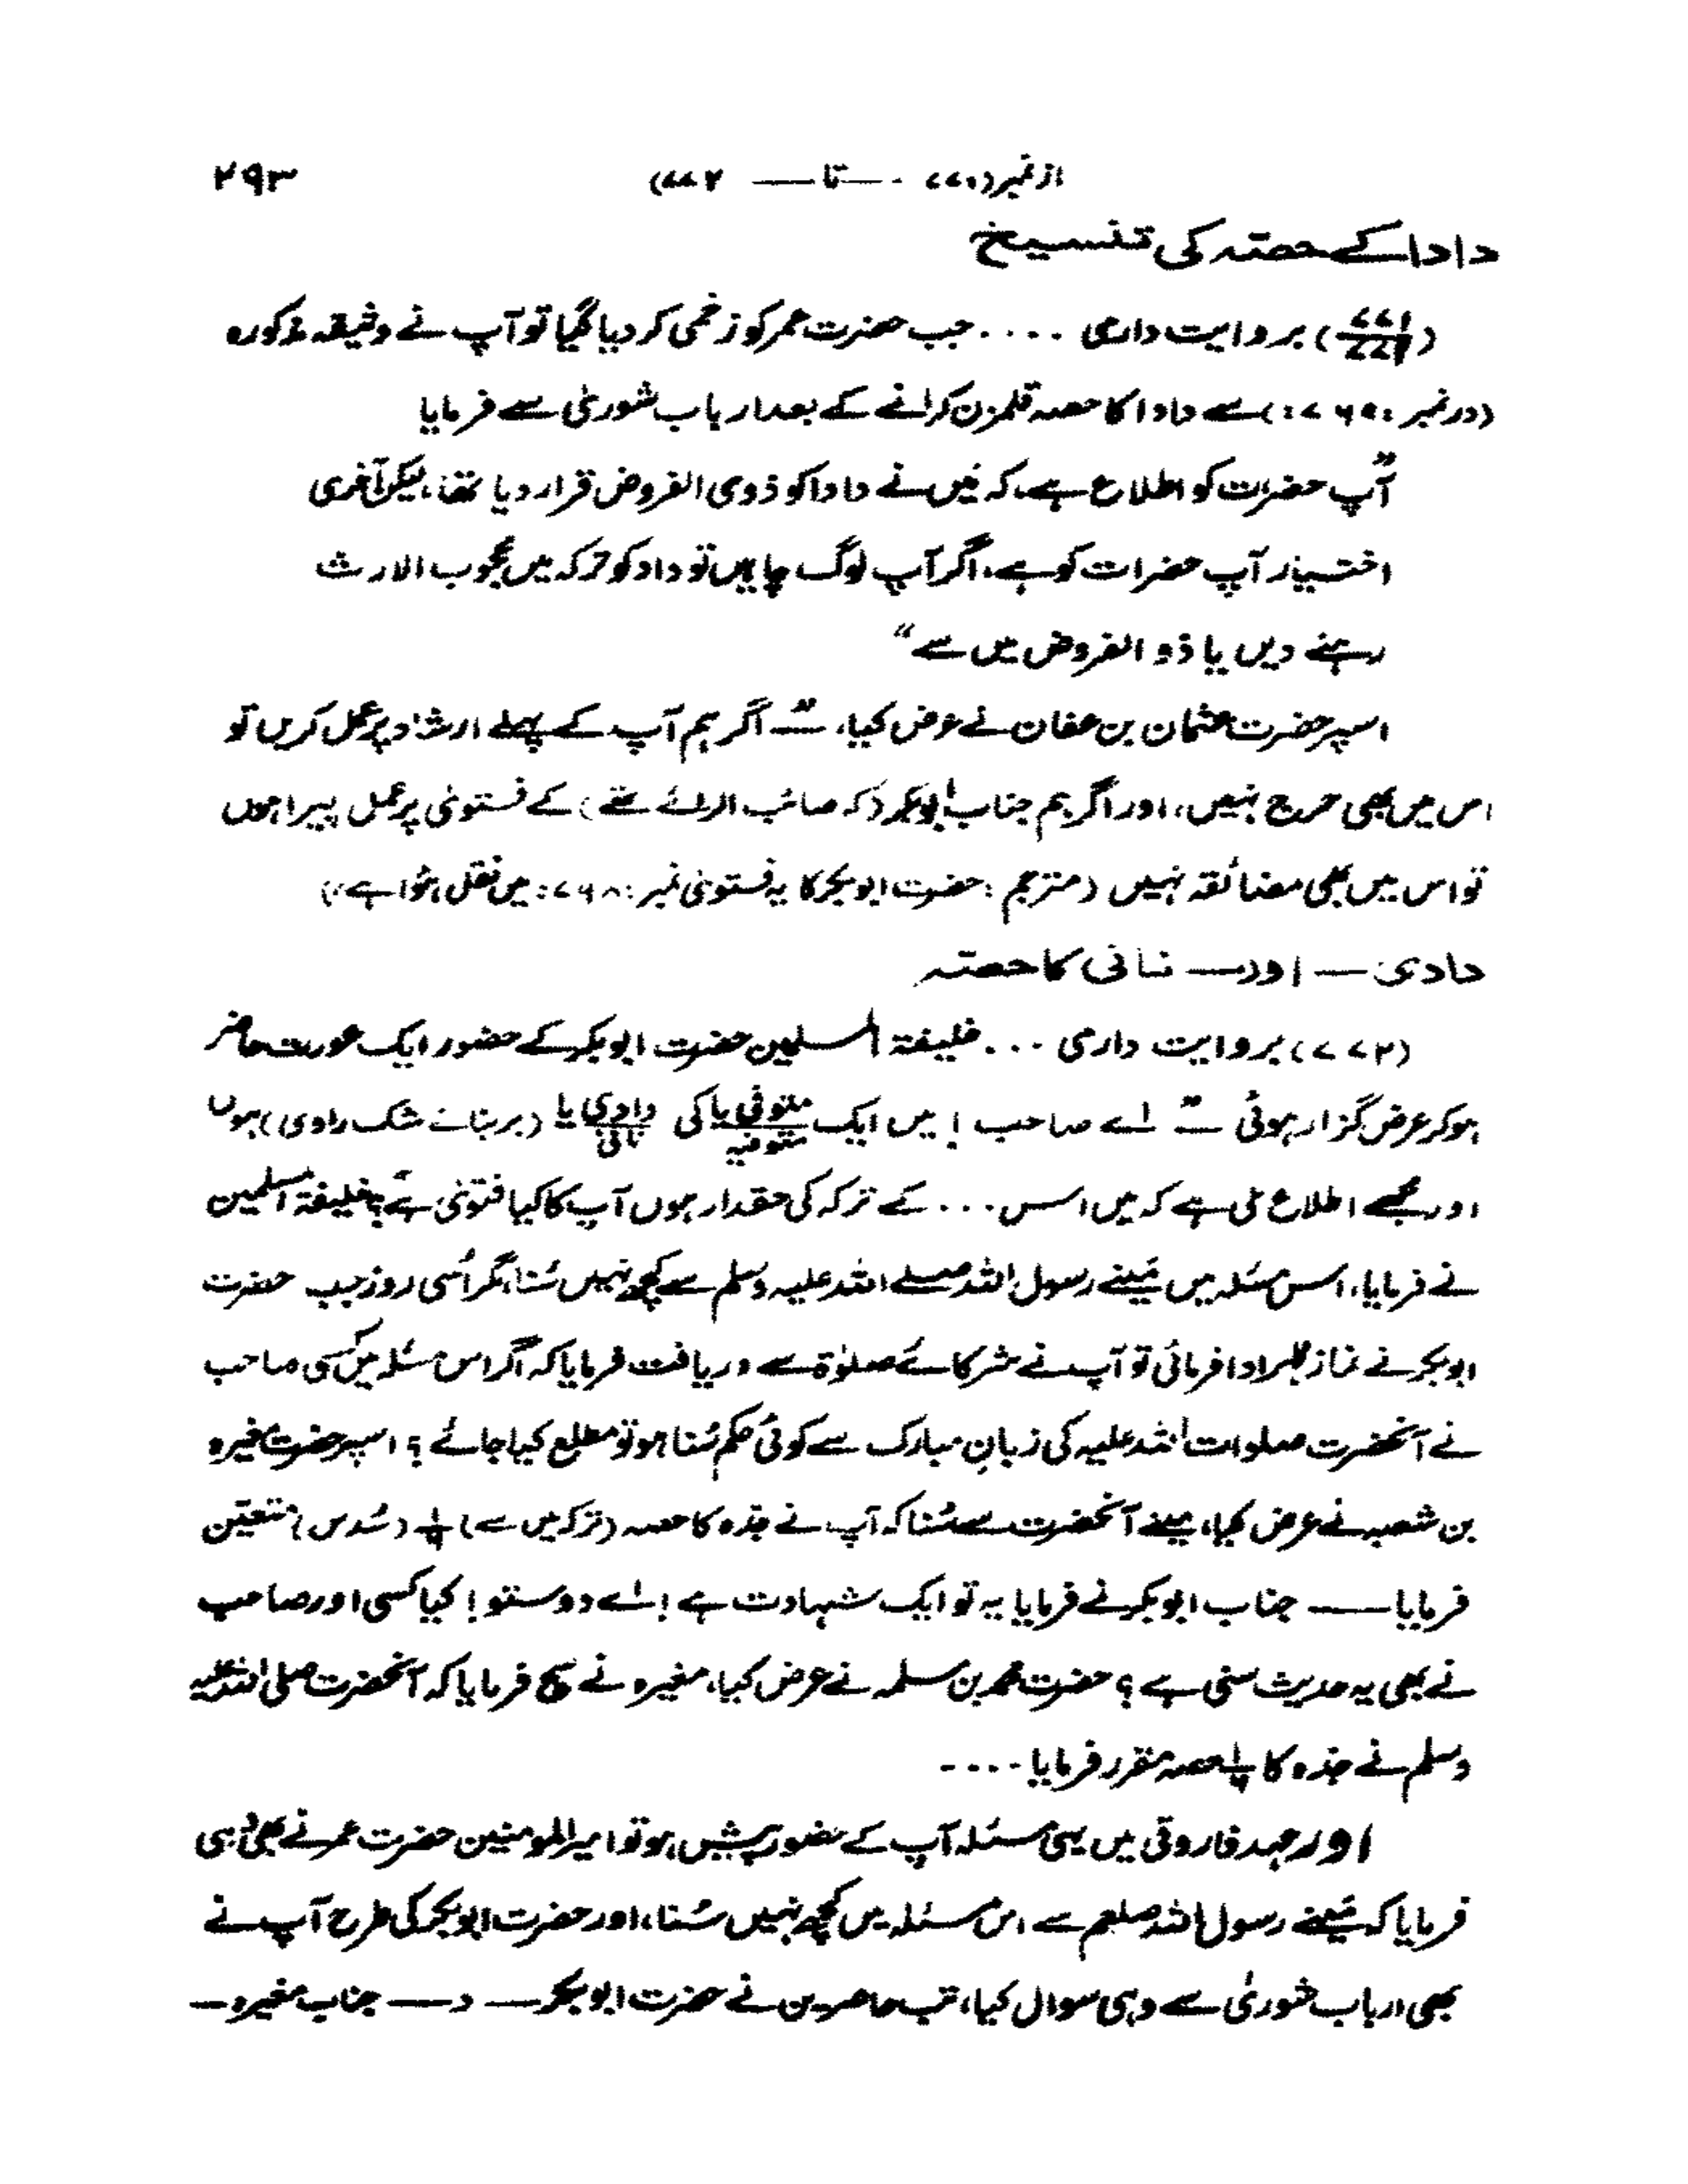 از نمبر (۷۷۰ — تا — ۷۷۲) ۲۹۳
دادا کے حصتہ کی تنسیخ
(۷۷۱) بروایت دارمی .... جب حضرت عمر کو زخمی کر دیا گیا تو آپ نے وثیقہ مذکورہ
(در نمبر :۷۶۹:) سے دادا کا حصہ قلمزن کرانے کے بعد ارباب شوریٰ سے فرمایا
"آپ حضرات کو اطلاع ہے، کہ میں نے دادا کو ذوی الفروض قرار دیا تھا، لیکن آخری
اختیار آپ حضرات کو ہے، اگر آپ لوگ چاہیں تو داد کو ترکہ میں محجوب الارث
رہنے دیں یا ذو الفروض میں سے"
اسپر حضرت عثمان بن عفان نے عرض کیا، "— اگر ہم آپ کے پہلے ارشاد پر عمل کریں تو
اس میں بھی حرج نہیں، اور اگر ہم جناب ابوبکر (کہ صائب الرائے تھے) کے فتویٰ پر عمل پیرا ہوں
تو اس میں بھی مضائقہ نہیں (مترجم : حضرت ابوبکر کا یہ فتویٰ نمبر :۷۶۸: میں نقل ہؤا ہے)
دادی — اور — نانی کا حصتہ
(۷۷۲) بروایت دارمی ... خلیفۃ المسلمین حضرت ابوبکر کے حضور ایک عورت حاضر
ہو کر عرض گزار ہوئی "— اے صاحب ! میں ایک متوفی یا متوفیہ کی دادی یا نانی (بربنائے شک راوی) ہوں
اور مجھے اطلاع ملی ہے کہ میں اس ... کے ترکہ کی حقدار ہوں آپ کا کیا فتویٰ ہے؟" خلیفۃ المسلمین
نے فرمایا، اس مسئلہ میں مَینے رسول اللہ صلے اللہ علیہ وسلم سے کچھ نہیں سُنا، مگر اُسی روز جب حضرت
ابوبکر نے نماز ظہر ادا فرمائی تو آپ نے شرکائے صلوٰۃ سے دریافت فرمایا کہ اگر اس مسئلہ میں کسی صاحب
نے آنحضرت صلوات اللہ علیہ کی زبانِ مبارک سے کوئی حکم سُنا ہو تو مطلع کیا جائے ؟ اسپر حضرت مغیرہ
بن شعبہ نے عرض کیا، مینے آنحضرت سے سُنا کہ آپ نے جدّہ کا حصہ (ترکہ میں سے) ۱/۶ (سُدس) متعیّن
فرمایا — جناب ابوبکر نے فرمایا یہ تو ایک شہادت ہے ! اے دوستو ! کیا کسی اور صاحب
نے بھی یہ حدیث سنی ہے ؟ حضرت محمد بن مسلمہ نے عرض کیا، مغیرہ نے سچ فرمایا کہ آنحضرت صلی اللہ علیہ
وسلم نے جدّہ کا ۱/۶ حصہ مقرر فرمایا ....
اور عہد فاروقی میں یہی مسئلہ آپ کے حضور پیش ہو تو امیر المومنین حضرت عمر نے بھی وہی
فرمایا کہ مَینے رسول اللہ صلعم سے اس مسئلہ میں کچھ نہیں سُنا، اور حضرت ابوبکر کی طرح آپ نے
بھی ارباب شوریٰ سے وہی سوال کیا، تب حاضرین نے حضرت ابوبکر — و — جناب مغیرہ —